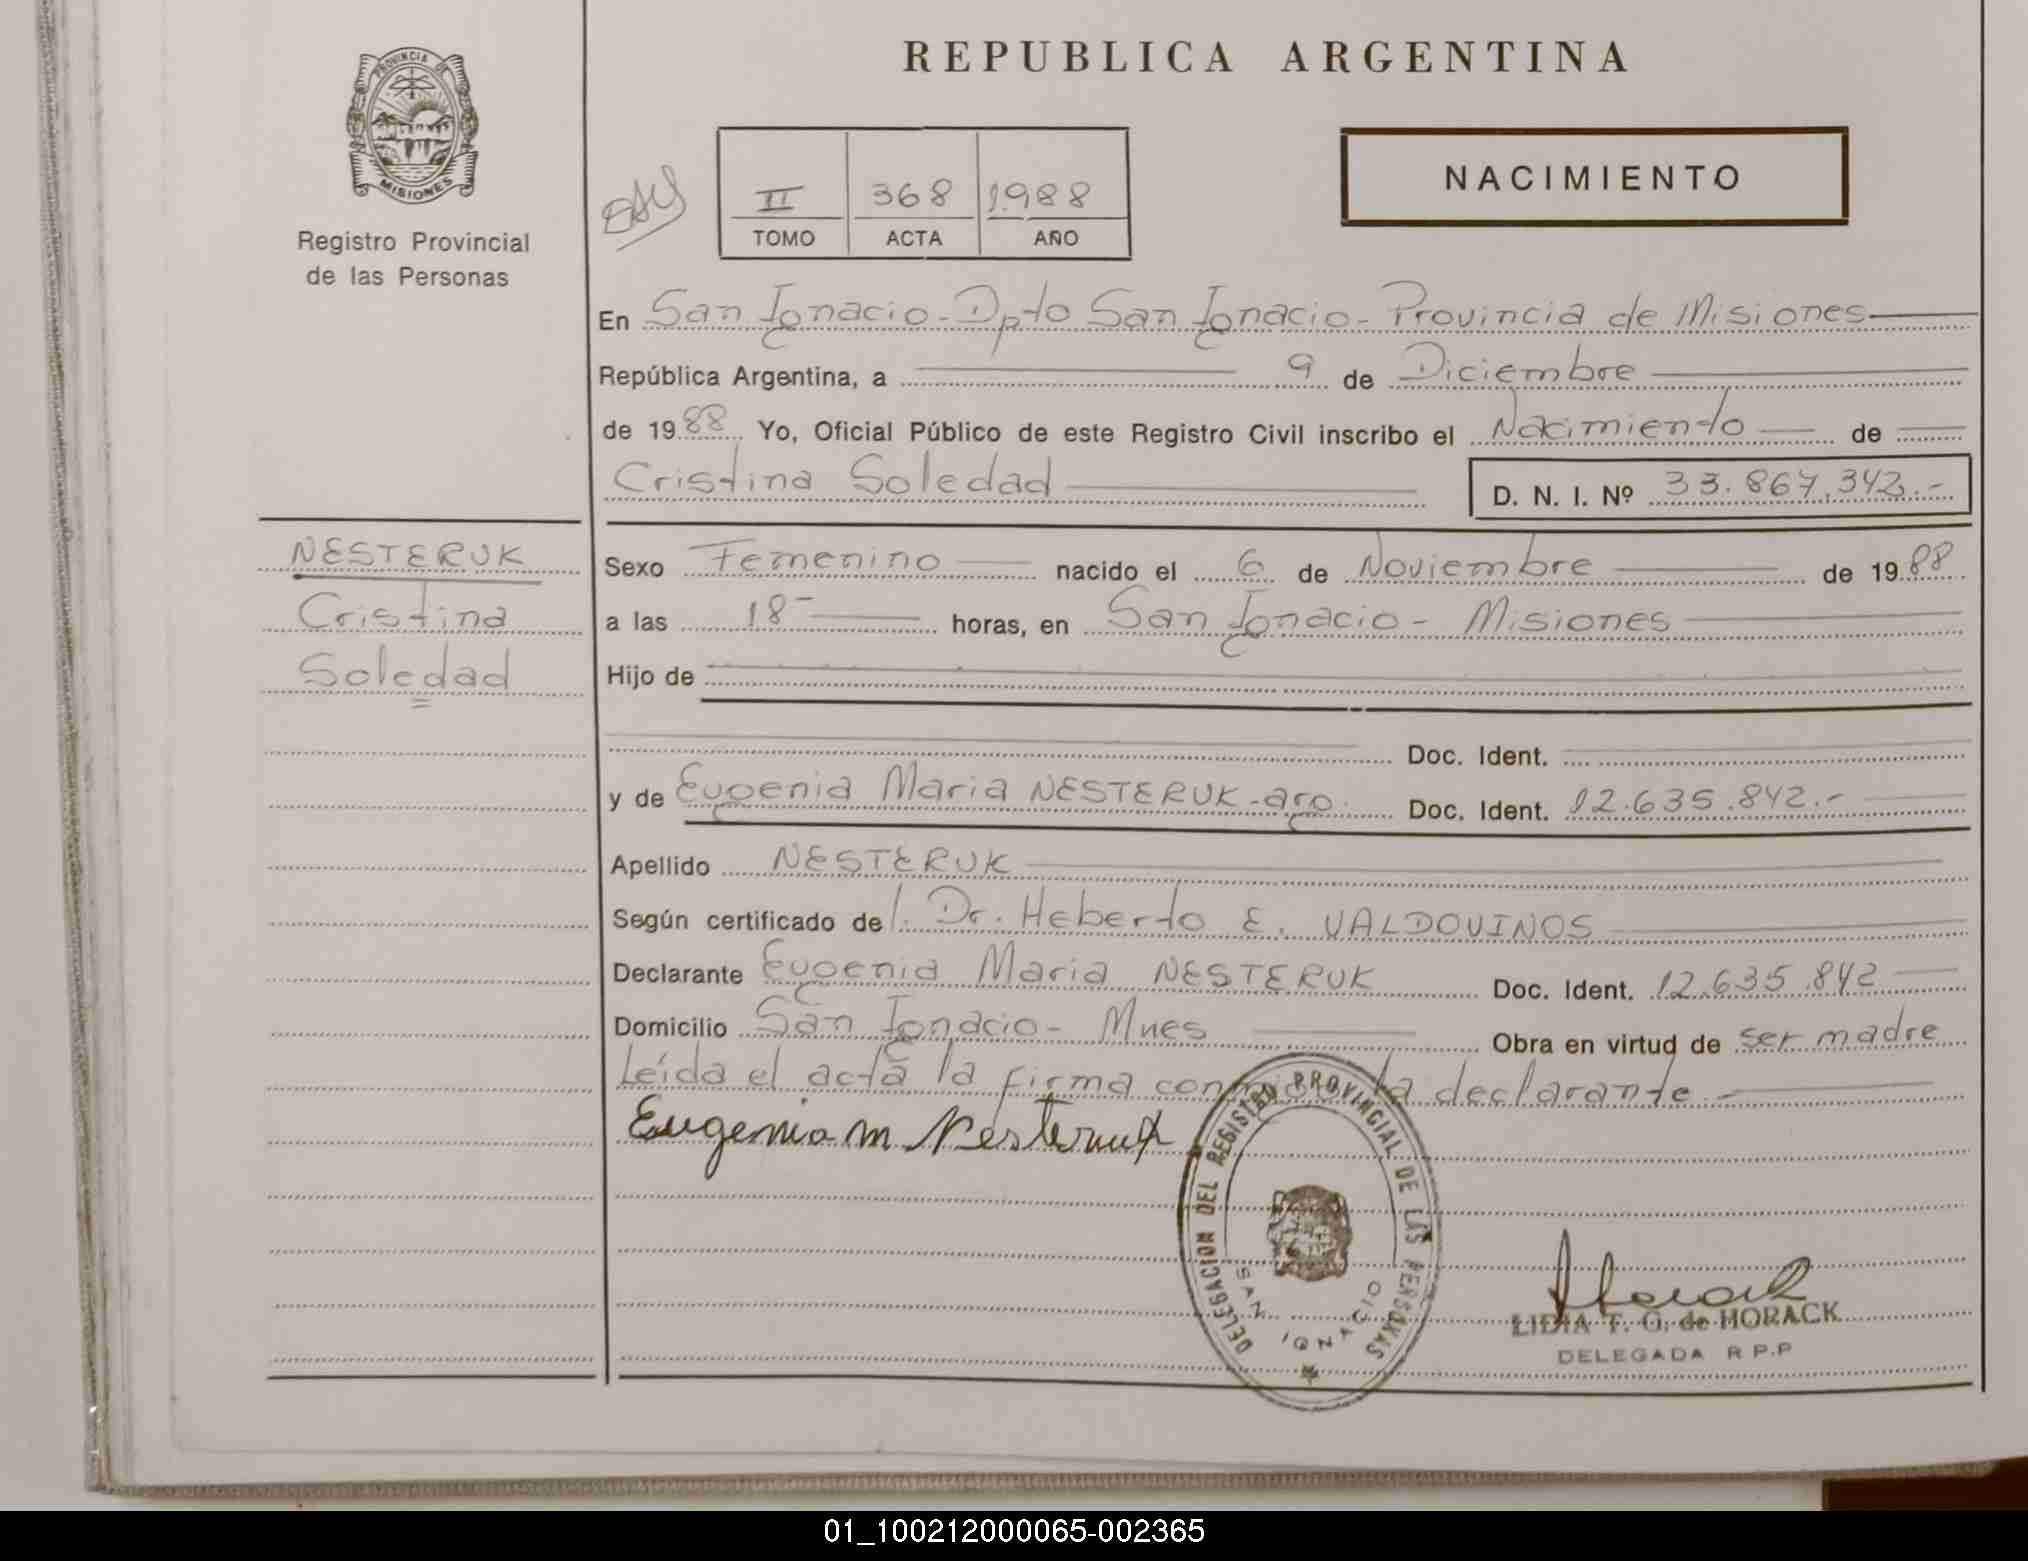 REPUBLICA ARGENTINA
PROVINCIA DE
MISIONES
Registro Provincial
de las Personas
II 368 1988
TOMO ACTA AÑO
NACIMIENTO
En San Ignacio - Dpto San Ignacio - Provincia de Misiones
República Argentina, a 9 de Diciembre
de 1988 Yo, Oficial Público de este Registro Civil inscribo el Nacimiento de
Cristina Soledad D. N. I. Nº 33.867.342.-
NESTERUK
Cristina
Soledad
Sexo Femenino nacido el 6 de Noviembre de 1988
a las 18- horas, en San Ignacio - Misiones
Hijo de
Doc. Ident.
y de Eugenia Maria NESTERUK - arg. Doc. Ident. 12.635.842.-
Apellido NESTERUK
Según certificado de l. Dr. Heberto E. VALDOVINOS
Declarante Eugenia Maria NESTERUK Doc. Ident. 12.635.842
Domicilio San Ignacio - Mnes Obra en virtud de ser madre
Leída el acta la firma conmigo la declarante.-
Eugenia M Nesteruk
DELEGACION DEL REGISTRO PROVINCIAL DE LAS PERSONAS
SAN IGNACIO
Horack
LIDIA T. G. de HORACK
DELEGADA R P.P
01_100212000065-002365